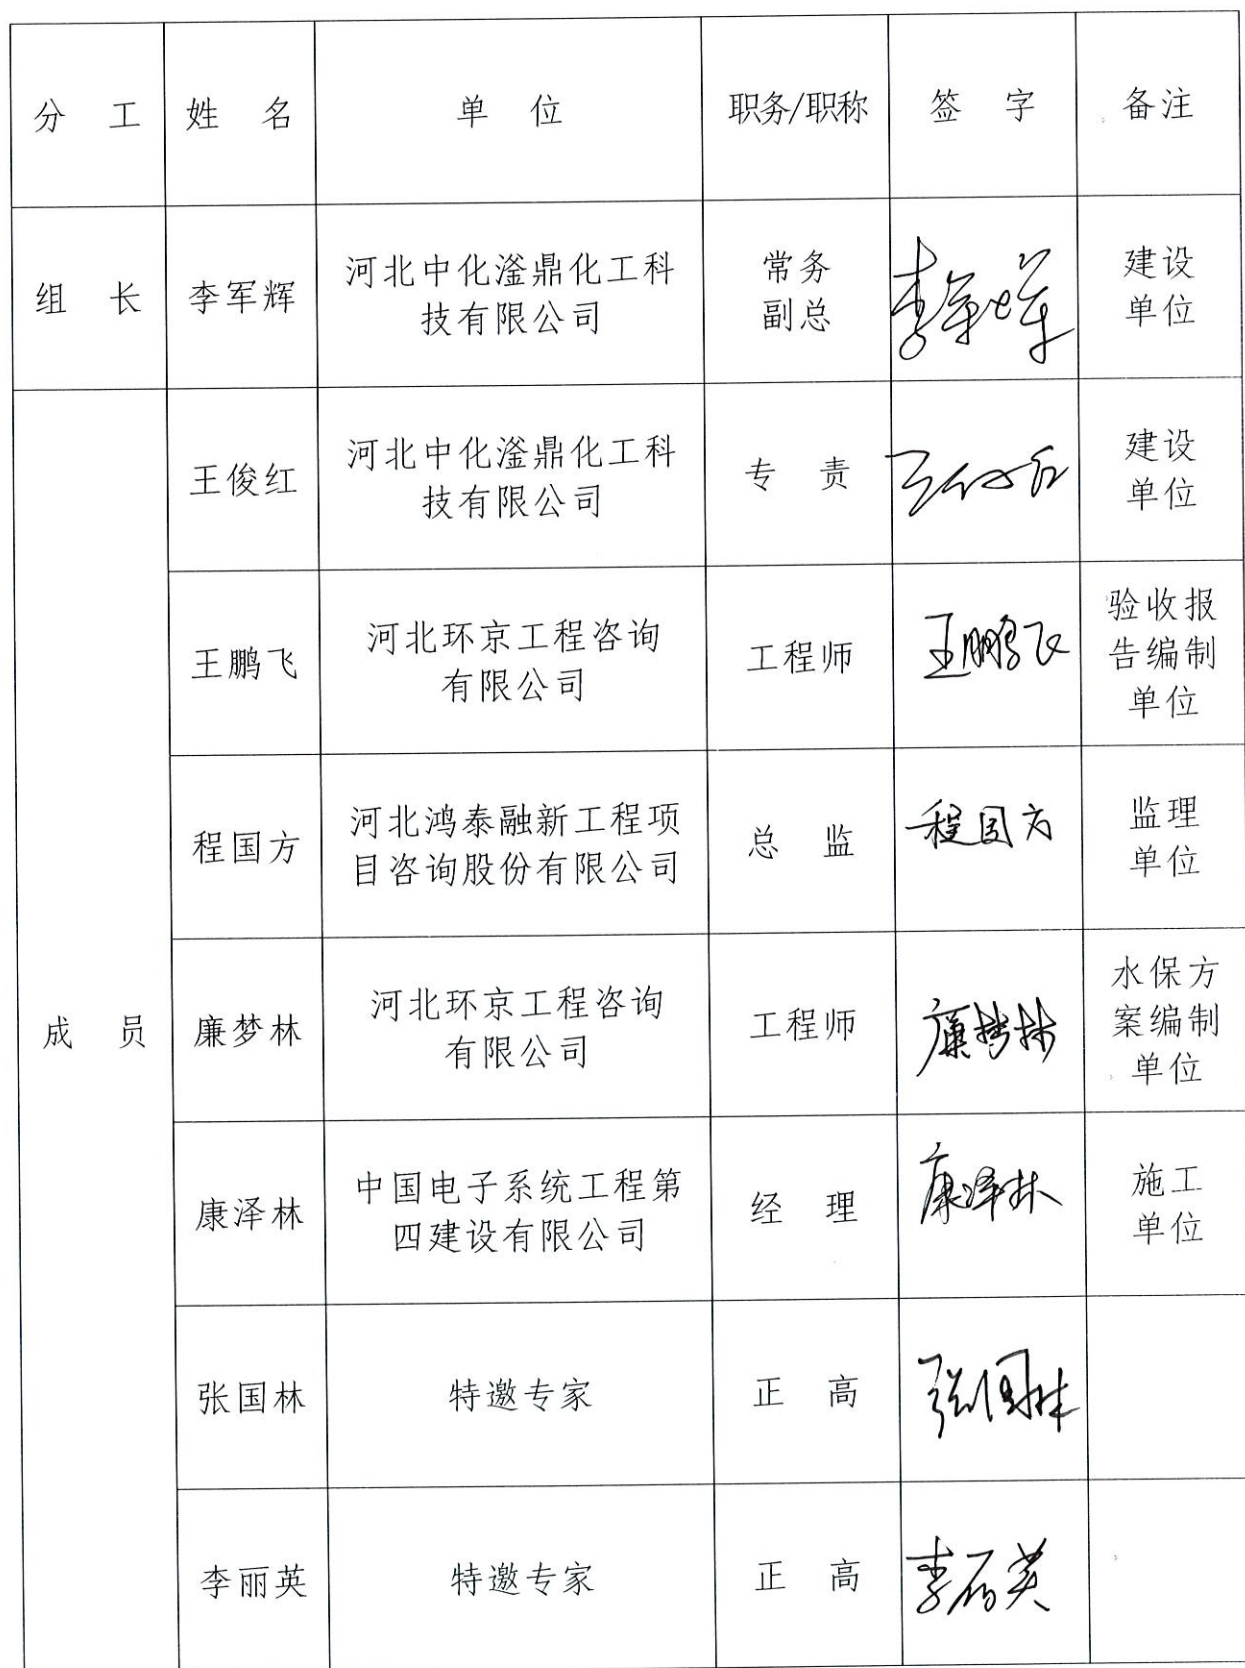 分 工 姓 名 单 位 职务/职称 签 字 备注
组 长 李军辉
河北中化滏鼎化工科
技有限公司
常务
副总
李军辉
建设
单位
成 员
王俊红
河北中化滏鼎化工科
技有限公司
专 责
王俊红
建设
单位
王鹏飞
河北环京工程咨询
有限公司
工程师
王鹏飞
验收报
告编制
单位
程国方
河北鸿泰融新工程项
目咨询股份有限公司
总 监
程国方
监理
单位
廉梦林
河北环京工程咨询
有限公司
工程师
廉梦林
水保方
案编制
单位
康泽林
中国电子系统工程第
四建设有限公司
经 理
康泽林
施工
单位
张国林
特邀专家
正 高
张国林
李丽英
特邀专家
正 高
李丽英